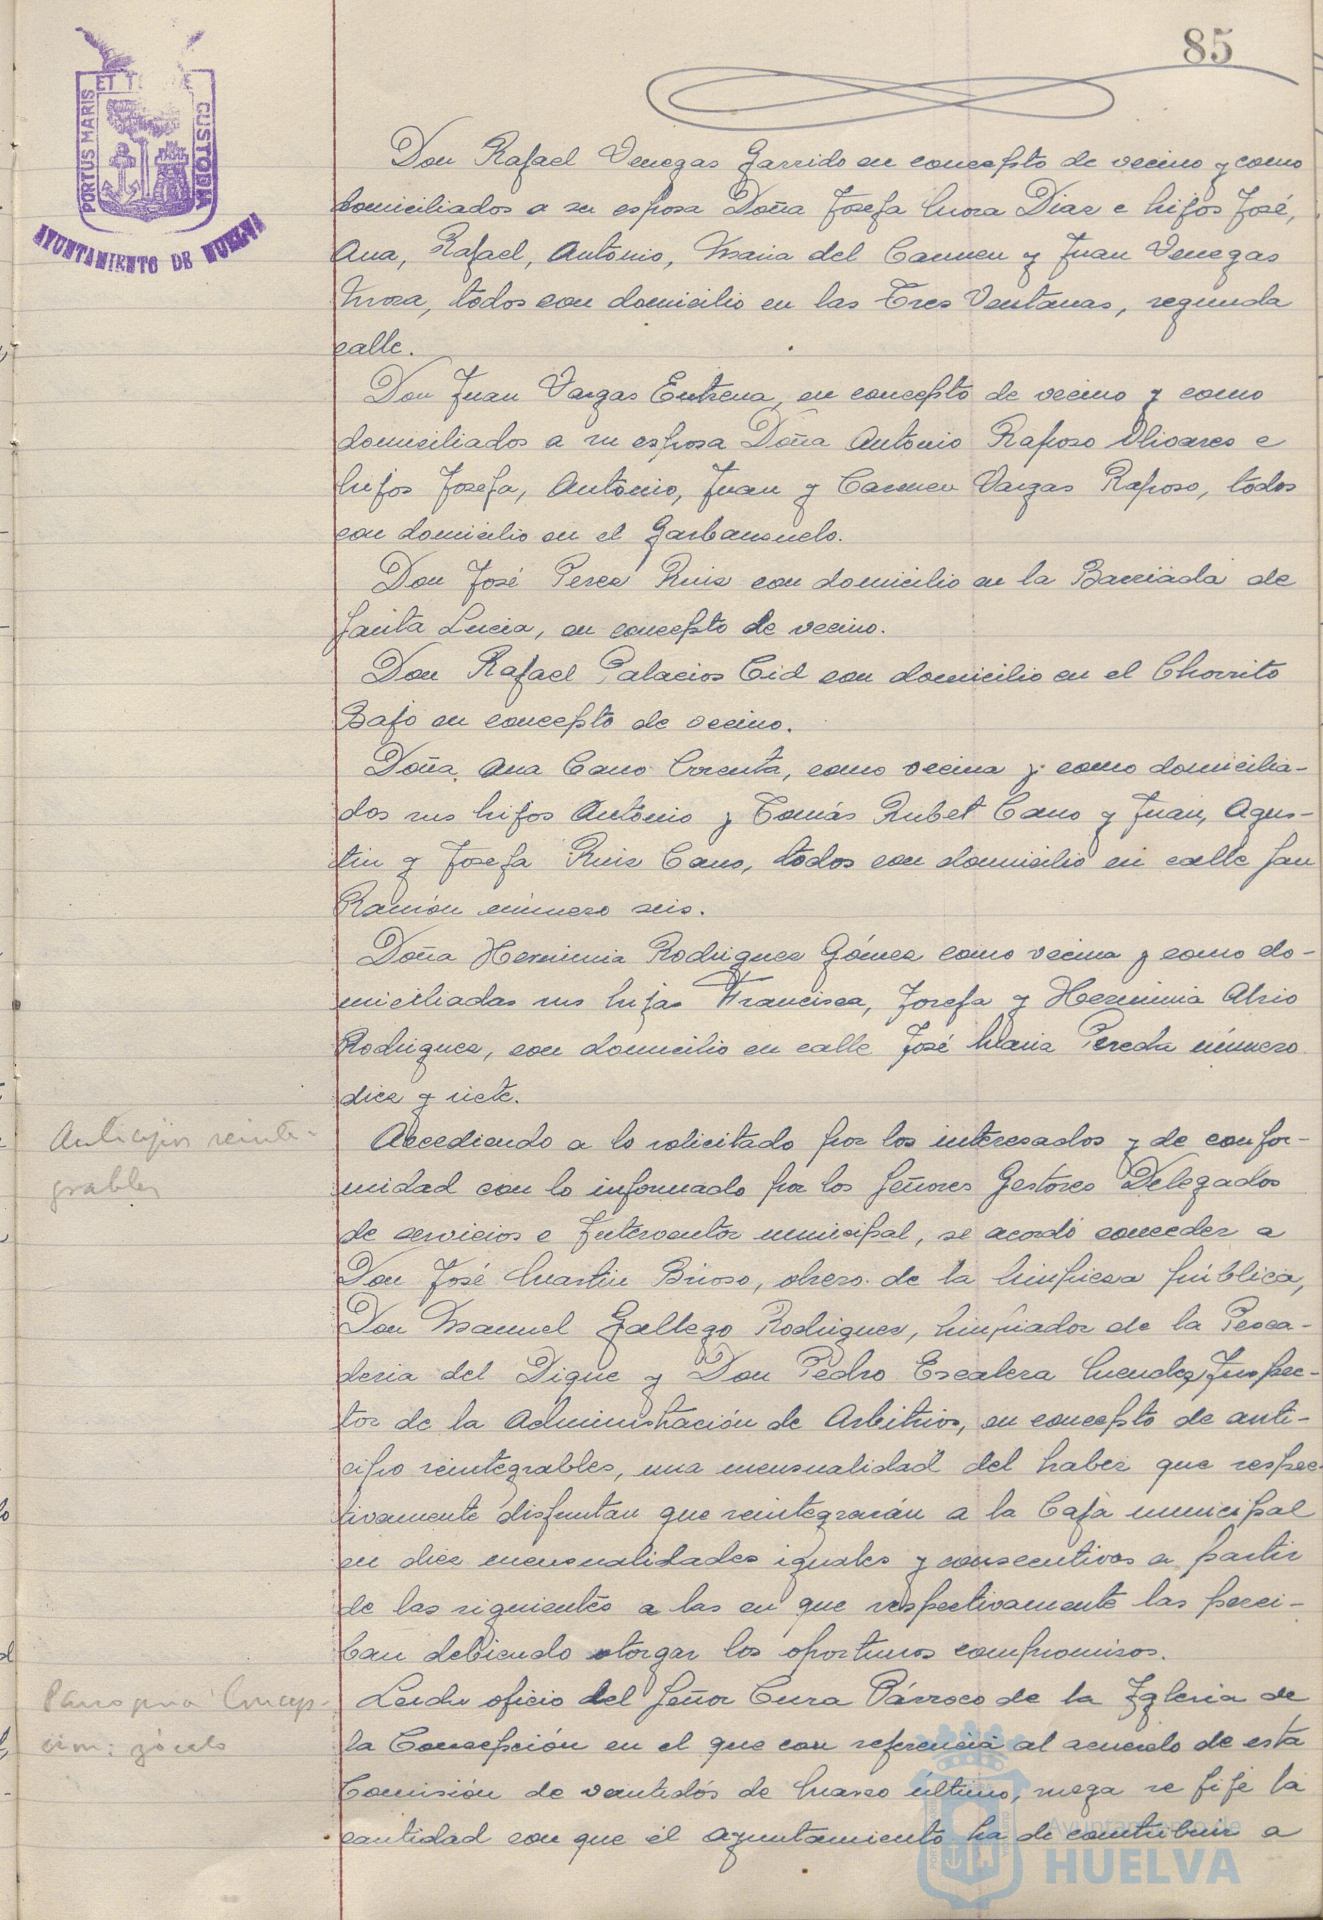 85
PORTUS MARIS ET T E CUSTODIA
AYUNTAMIENTO DE HUELVA
Don Rafael Venegas Garrido en concepto de vecino y como
domiciliados a su esposa Doña Josefa Mora Diaz e hijos José,
Ana, Rafael, Antonio, Maria del Carmen y Juan Venegas
Mora, todos con domicilio en las Tres Ventanas, segunda
calle.
Don Juan Vargas Entrena, en concepto de vecino y como
domiciliados a su esposa Doña Antonio Raposo Olivares e
hijos Josefa, Antonio, Juan y Carmen Vargas Raposo, todos
con domicilio en el Garbansuelo.
Don José Perez Ruiz con domicilio en la Barriada de
Santa Lucia, en concepto de vecino.
Don Rafael Palacios Cid con domicilio en el Chorrito
Bajo en concepto de vecino.
Doña Ana Cano, como vecina y como domicilia-
dos sus hijos Antonio y Tomás Rubet Cano y Juan, Agus-
tin y Josefa Ruiz Cano, todos con domicilio en calle San
Ramón número seis.
Doña Herminia Rodriguez Gómez como vecina y como do-
miciliadas sus hijas Francisca, Josefa y Herminia
Rodriguez, con domicilio en calle José Maria Pereda número
diez y siete.
Anticipios reinte-
grables
Accediendo a lo solicitado por los interesados y de confor-
midad con lo informado por los Señores Gestores Delegados
de servicios e Interventor municipal, se acordó conceder a
Don José Martin Brioso, obrero de la limpieza pública,
Don Manuel Gallego Rodriguez, limpiador de la Pesca-
deria del Dique y Don Pedro Escalera Mendez, Inspec-
tor de la Administración de Arbitrios, en concepto de anti-
cipo reintegrables, una mensualidad del haber que respec-
tivamente disfrutan que reintegrarán a la Caja municipal
en diez mensualidades iguales y consecutivas a partir
de las siguientes a las en que respectivamente las perci-
ban debiendo otorgar los oportunos compromisos.
Parroquia Concep-
ción: zócalo
Leido oficio del Señor Cura Párroco de la Iglesia de
la Concepción en el que con referencia al acuerdo de esta
Comisión de veintidós de Marzo último, ruega se fije la
cantidad con que el Ayuntamiento ha de contribuir a
Ayuntamiento de
HUELVA